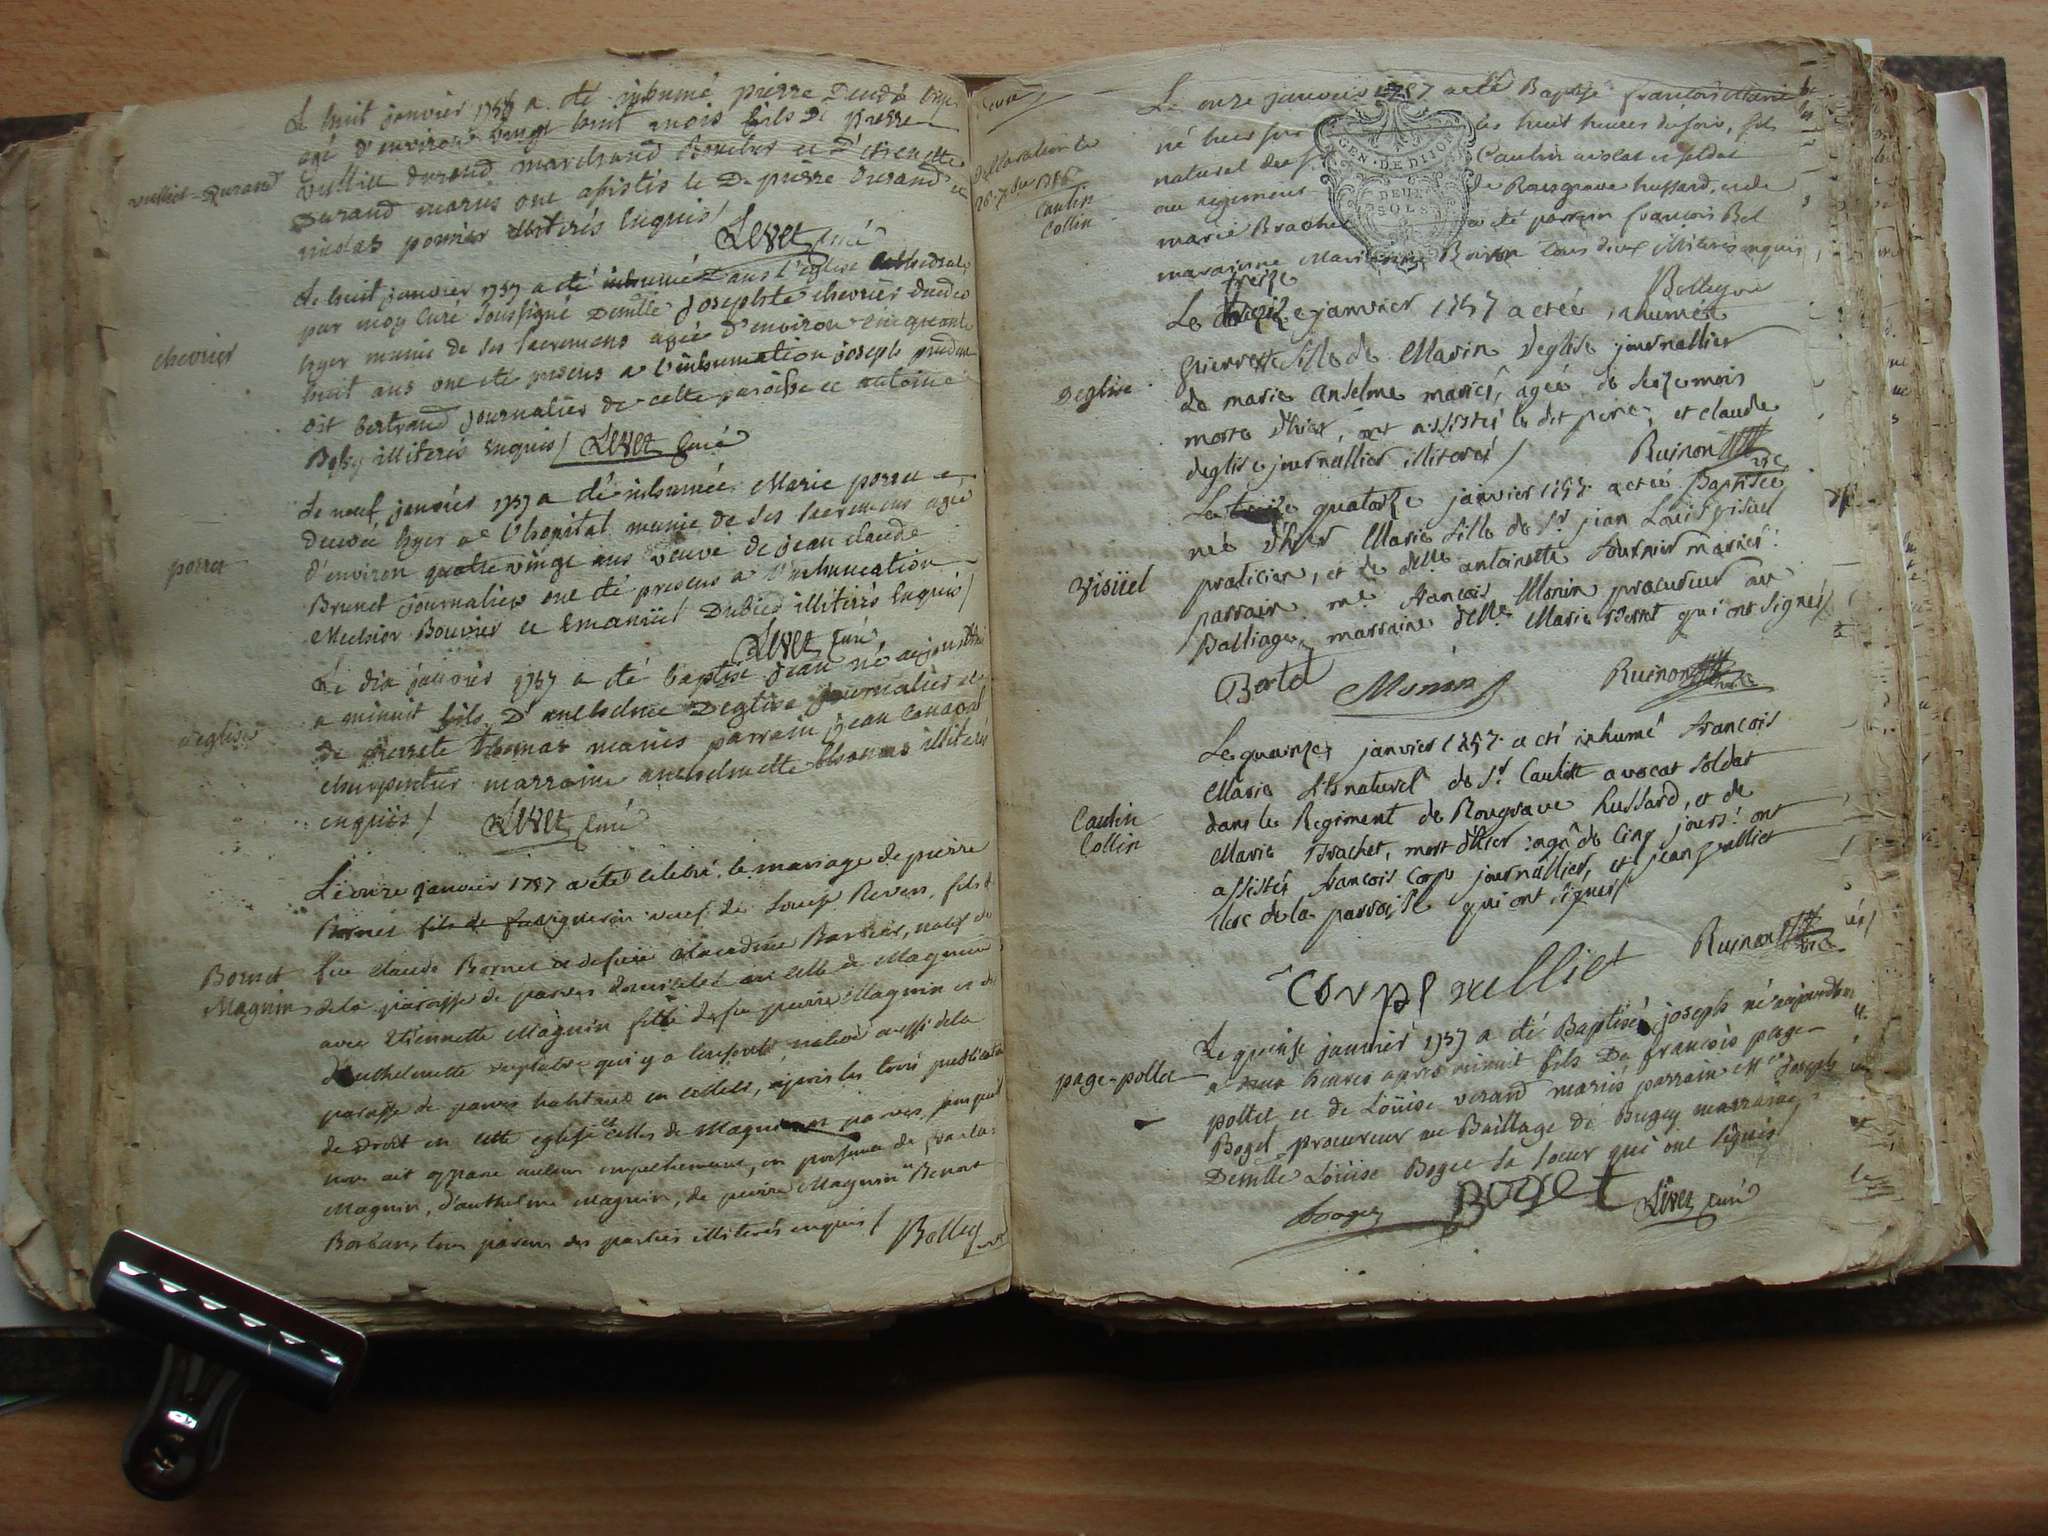 Le huit janvier 1757 a été inhumé pierre decédé hyer
agé d'environ vingt huit mois fils de pierre
vulliet durand marchand et d'etienette
Durand mariés ont assistés le Dt pierre Durand et
nicolas ponier illiterés enquis /
vulliet-Durand
Levet Curé
Le huit janvier 1757 a été inhumée dans l'eglise cathedrale
par moy Curé soussigné Demlle Josephte chevrier decedee
hyer munie de ses sacremens agée d'environ cinquante
huit ans ont été presens a l'inhumation joseph
bertrand journalier de cette paroisse et antoine
illiterés enquis / Levet Curé
chevrier
Le neuf janvier 1757 a été inhumée Marie porret
decedée hyer a l'hopital munie de ses sacremens agée
d'environ quatre vingt ans veuve de jean claude
Brunet journalier ont été presens a l'inhumation
Melchior Bouvier et Emanuel Dubied illiterés Enquis /
porret
Levet Curé
Le dix janvier 1757 a été baptisé jean né aujourdhui
a minuit fils D'anthelme Deglise journalier et
de pierrete thomas mariés parrain jean
charpentier marraine anthelmette thomas illiterés
enquis / Levet Curé
deglise
Le onze janvier 1757 a été celebré le mariage de pierre
Bornet fils de feu vigneron veuf de Louise Revers, fils de
feu claude Bornet et de feüe claudine Barbier, natif de
de la paroisse de parves domicilié en celle de Magnieu
avec Etiennette Magnin fille de feu pierre Magnin et de
d'anthelmette qui y a consenti, native aussi de la
paroisse de parves habitant en cellecy, après les trois publications
de droit en cette eglise et celles de Magnieu parves, sans qu'il
nous ait apparu aucun empechement, en presence de
Magnin, d'anthelme Magnin, de pierre Magnin Benoit
tous parens des parties illiterés enquis /
Bornet
Magnin
Bolley
Le onze janvier 1757 a été Baptisé françois Marie
né hier sur les huit heures du soir, fils
naturel du Sr Caulin avocat et soldat
au regiment de Rougrave hussard, et de
marie Brachet a été parrain francois Bel
maraine Marianne Boiron tous deux illiterés enquis
Declaration du
Caulin
Collin
GEN. DE DIJON
DEUX
SOLS
Bolley
treize
Le janvier 1757 a étée inhumée
pierrette fille de Marin Deglise journallier
de marie anselme mariés, agée de seize mois
morte d'hier, ont assistés le dit pere, et claude
deglise journallier illiterés /
Deglise
Ruinon vic
Le quatorze janvier 1757 a étée Baptisée
née d'hier Marie fille de Sr jean Louis visüel
praticien, et de delle antoinette fournier mariés:
parrain me françois Monin procureur au
Balliage, marraine delle Marie Bertet qui ont signés /
Visüel
Bertet Monin Ruinon vic
Le quinze janvier 1757 a été inhumé françois
Marie fils naturel de Sr Caulin avocat soldat
dans le Regiment de Rougrave hussard, et de
Marie Brachet, mort d'hier agé de Cinq jours: ont
assistés françois Corp journallier, et jean vulliet
clerc de la parroisse qui ont signés /
Caulin
Collin
Corp vulliet Ruinon vic
Le quinze janvier 1757 a été Baptisé joseph né aujourdhui
a deux heures apres minuit fils De francois page
pollet et de Loüise verand mariés parrain Mr joseph
Boget procureur au Baillage de Bugey marraine
Demlle Loüise Boget sa soeur qui ont signés
page-pollet
Boget Boget Levet Curé